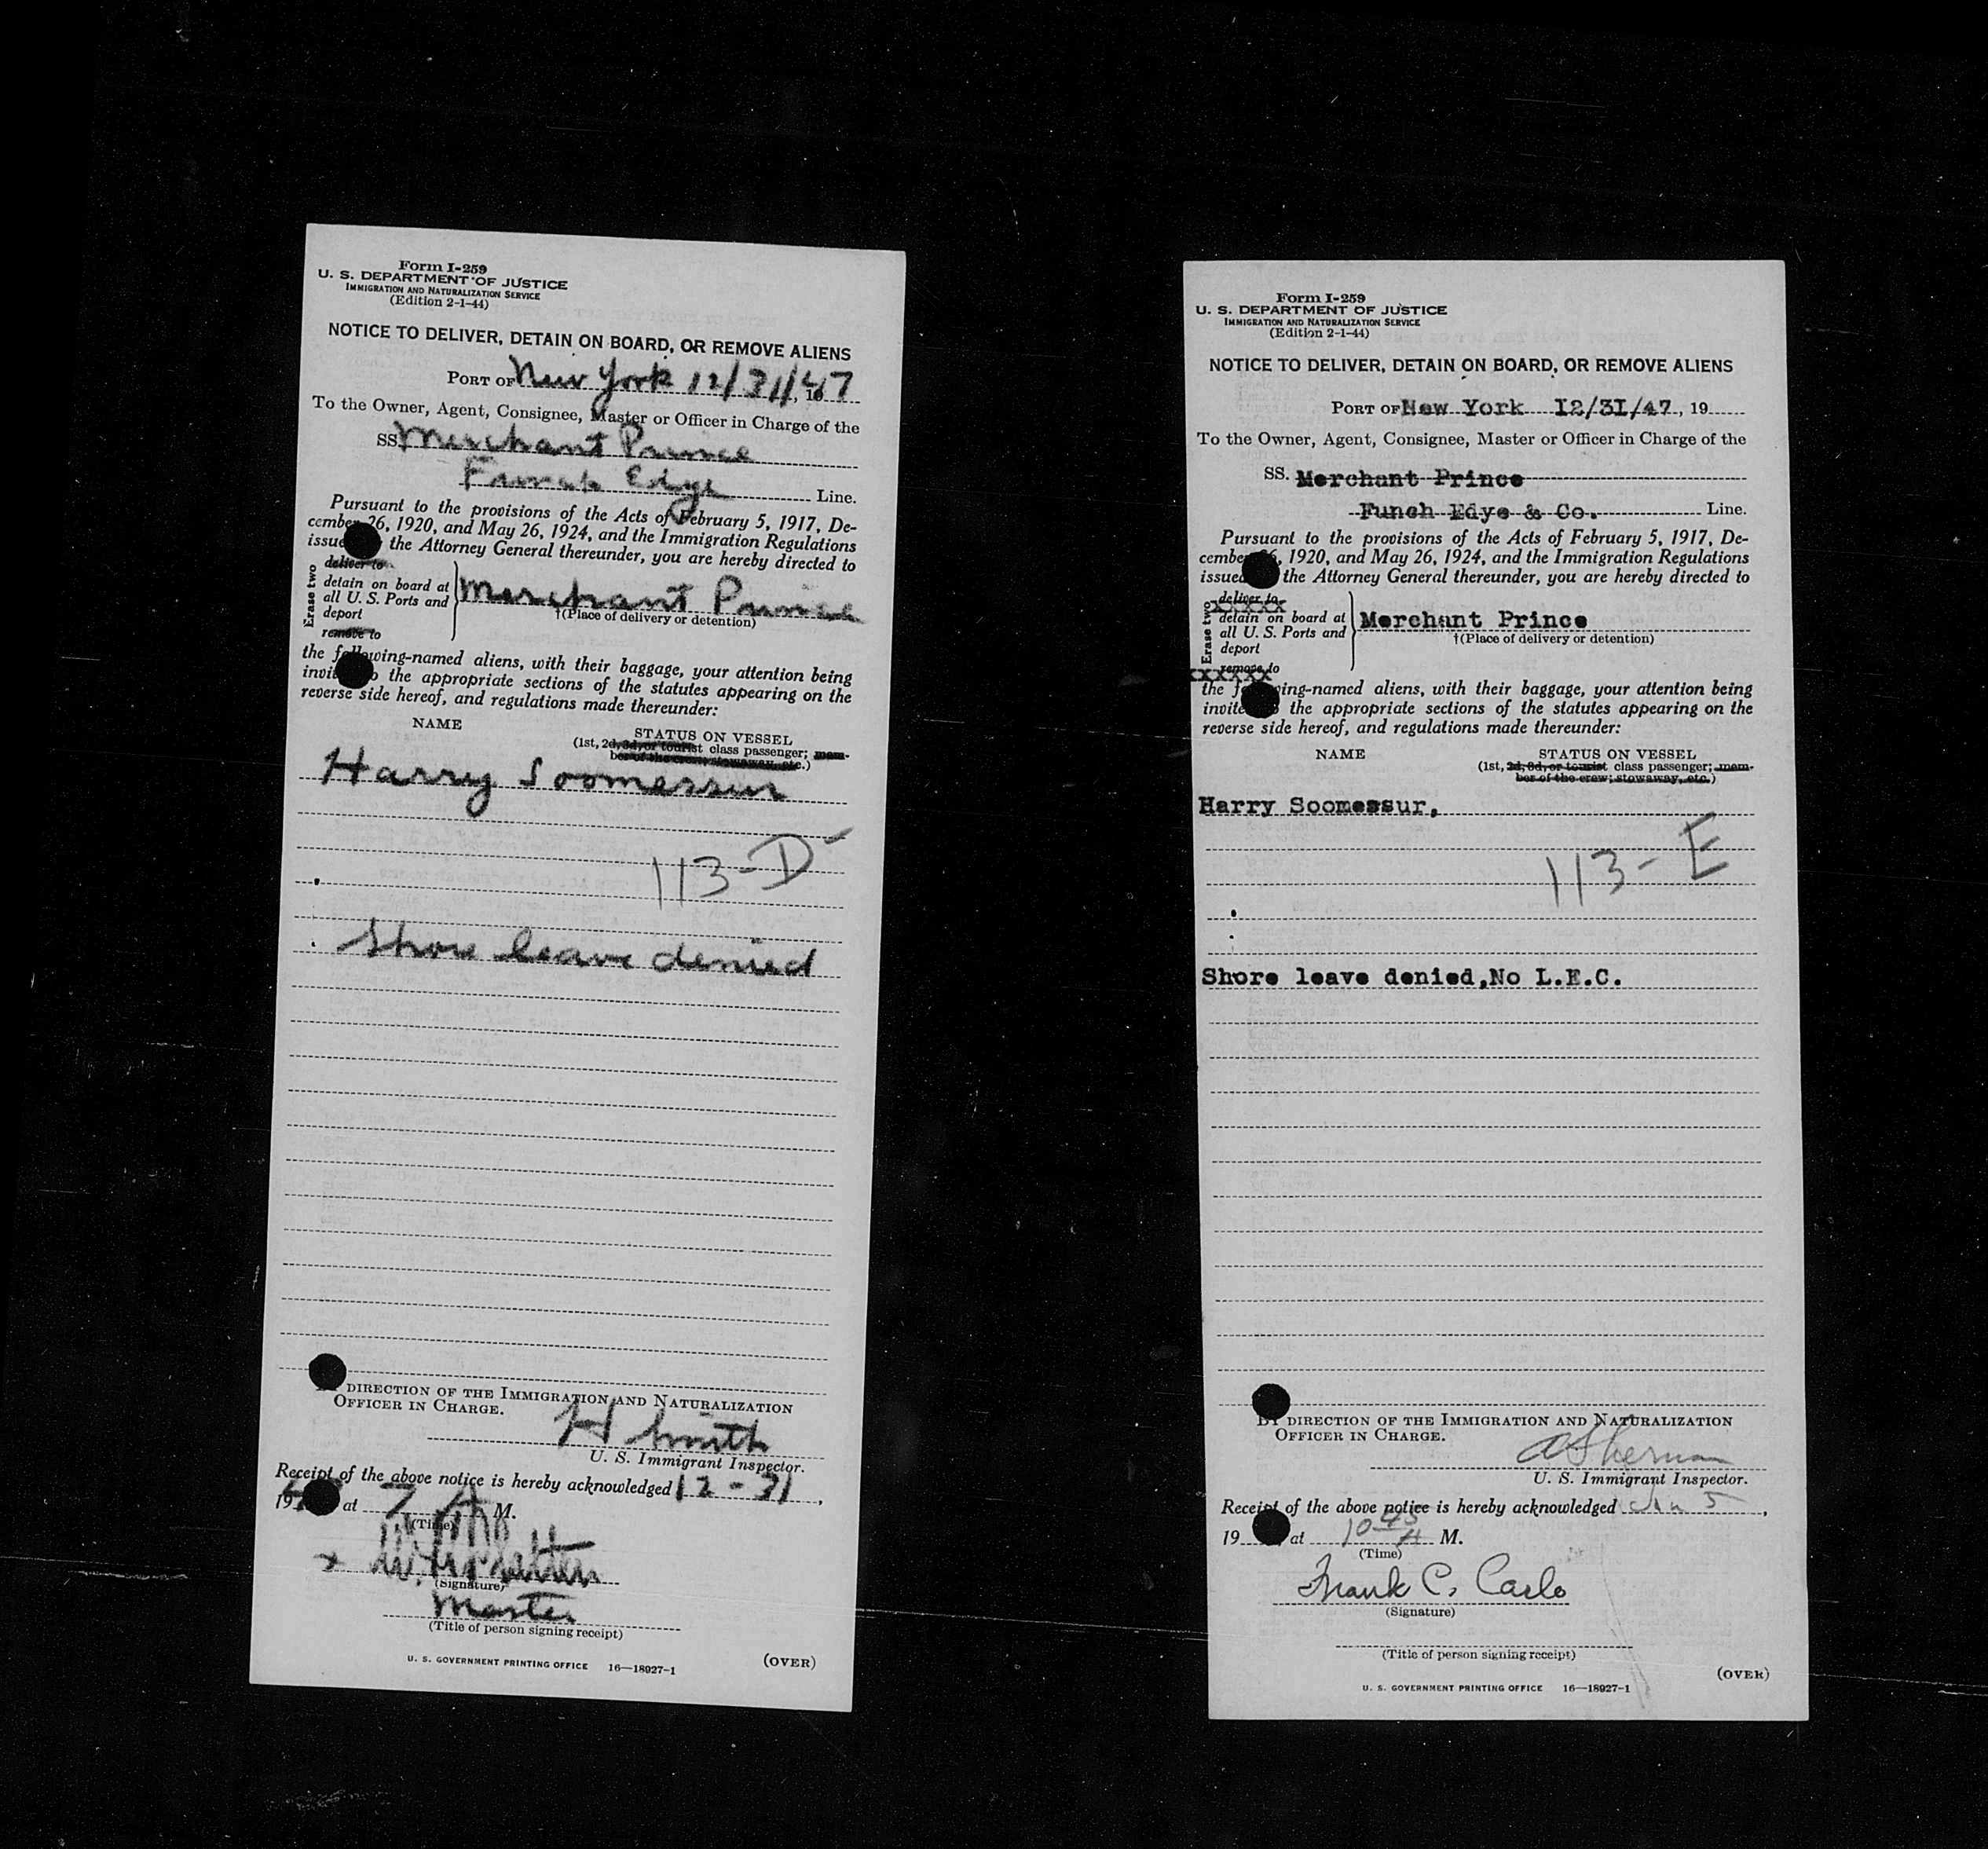 Form I-259
U. S. DEPARTMENT OF JUSTICE
IMMIGRATION AND NATURALIZATION SERVICE
(Edition 2-1-44)
NOTICE TO DELIVER, DETAIN ON BOARD, OR REMOVE ALIENS
PORT OF New York 12/31/, 1947
To the Owner, Agent, Consignee, Master or Officer in Charge of the
SS. Merchant Prince
Funch Edye Line.
Pursuant to the provisions of the Acts of February 5, 1917, De-
cember 26, 1920, and May 26, 1924, and the Immigration Regulations
issued the Attorney General thereunder, you are hereby directed to
Erase two
deliver to
detain on board at
all U. S. Ports and
deport
remove to
Merchant Prince
†(Place of delivery or detention)
the following-named aliens, with their baggage, your attention being
invited to the appropriate sections of the statutes appearing on the
reverse side hereof, and regulations made thereunder:
NAME
STATUS ON VESSEL
(1st, 2d, 3d, or tourist class passenger; mem-
ber of the crew; stowaway, etc.)
Harry Soomessur
113-D
Shore leave denied
DIRECTION OF THE IMMIGRATION AND NATURALIZATION
OFFICER IN CHARGE.
H Smith
U. S. Immigrant Inspector.
Receipt of the above notice is hereby acknowledged 12-31,
19 at 7 A M.
(Time)
x
(Signature)
Master
(Title of person signing receipt)
U. S. GOVERNMENT PRINTING OFFICE 16—18927-1
(OVER)
Form I-259
U. S. DEPARTMENT OF JUSTICE
IMMIGRATION AND NATURALIZATION SERVICE
(Edition 2-1-44)
NOTICE TO DELIVER, DETAIN ON BOARD, OR REMOVE ALIENS
PORT OF New York 12/31/47, 19
To the Owner, Agent, Consignee, Master or Officer in Charge of the
SS. Merchant Prince
Funch Edye & Co. Line.
Pursuant to the provisions of the Acts of February 5, 1917, De-
cember 26, 1920, and May 26, 1924, and the Immigration Regulations
issued the Attorney General thereunder, you are hereby directed to
Erase two
deliver to
detain on board at
all U. S. Ports and
deport
remove to
Merchant Prince
†(Place of delivery or detention)
the following-named aliens, with their baggage, your attention being
invited the appropriate sections of the statutes appearing on the
reverse side hereof, and regulations made thereunder:
NAME
STATUS ON VESSEL
(1st, 2d, 3d, or tourist class passenger; mem-
ber of the crew; stowaway, etc.)
Harry Soomessur,
113-E
Shore leave denied,No L.E.C.
BY DIRECTION OF THE IMMIGRATION AND NATURALIZATION
OFFICER IN CHARGE.
A Sherman
U. S. Immigrant Inspector.
Receipt of the above notice is hereby acknowledged Jan 5,
19 at 10 45 A M.
(Time)
Frank C. Carlo
(Signature)
(Title of person signing receipt)
U. S. GOVERNMENT PRINTING OFFICE 16—18927-1
(OVER)